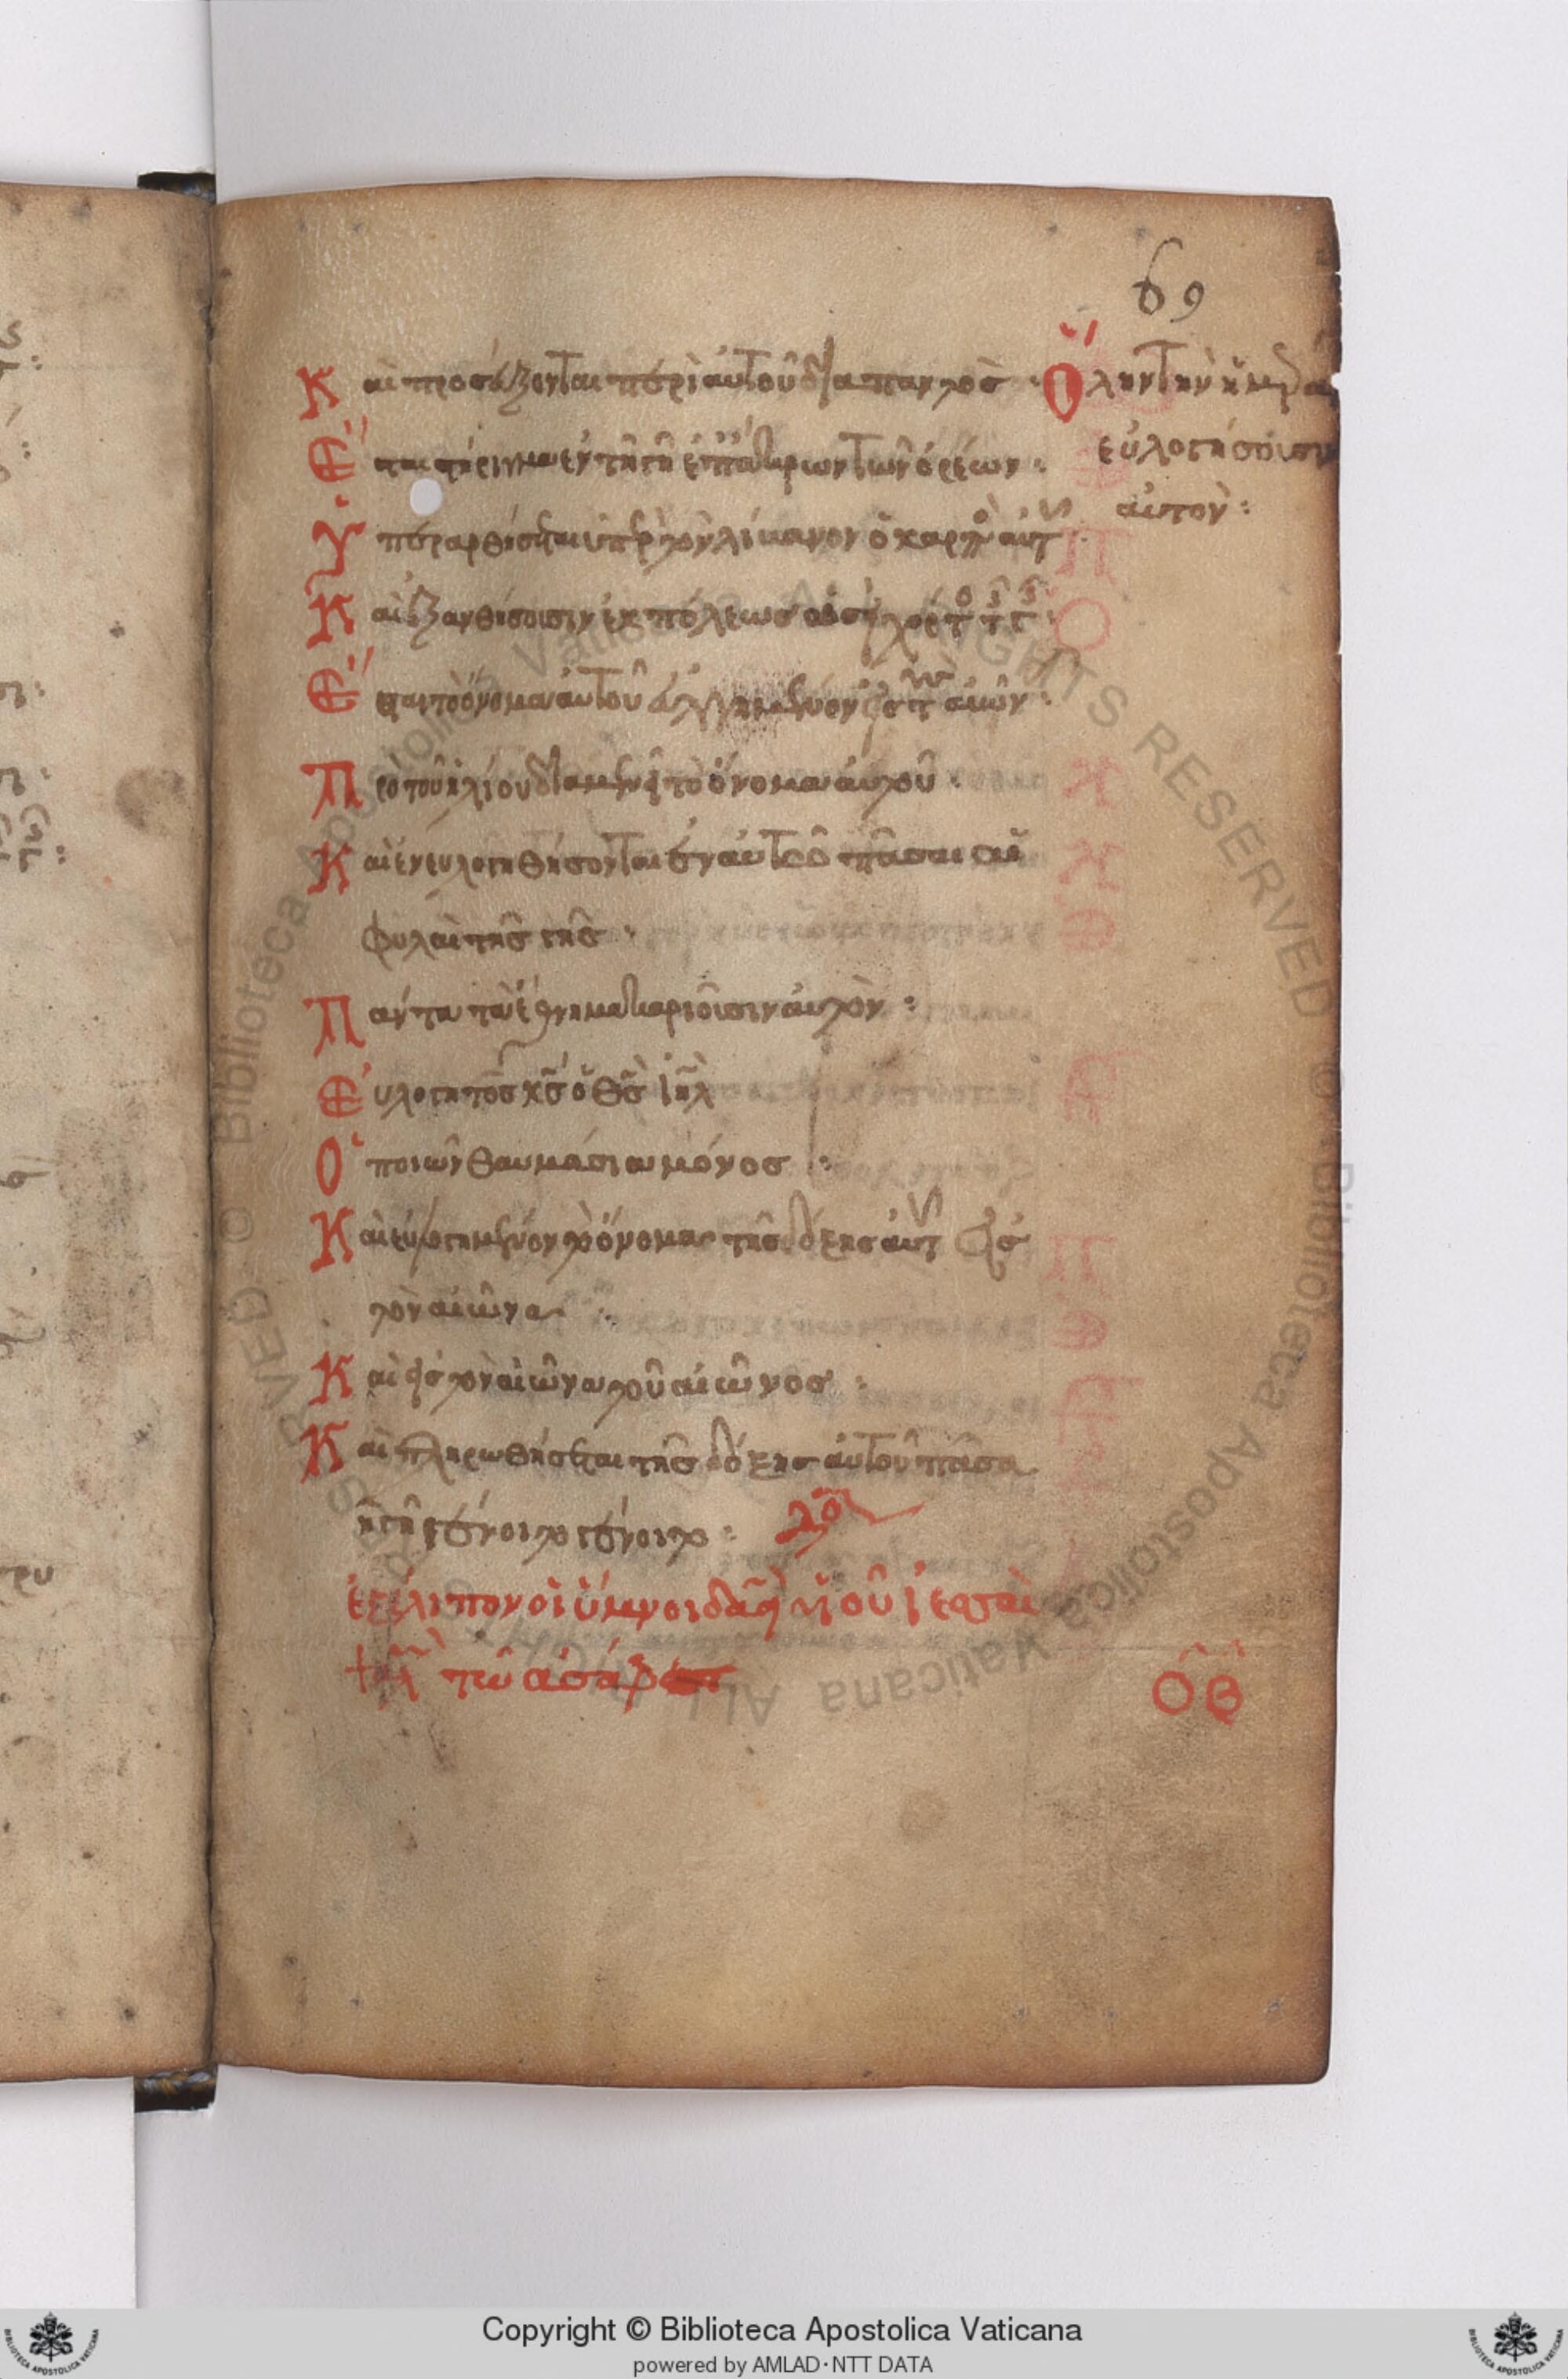 69
Καὶ προσεύξονται περὶ αὐτοῦ διαπαντὸς · Ὅλην τὴν ἡμέραν
εὐλογήσουσιν
αὐτόν :
Ἔσται στήριγμα ἐν τῇ γῇ ἐπ ἄκρων τῶν ὀρέων :
Ὑπεραρθήσεται ὑπὲρ τὸν λίβανον ὁ καρπὸς αὐτοῦ
Καὶ ἐξανθήσουσιν ἐκ πόλεως ὡσεὶ χόρτος τῆς γῆς :
Ἔσται τὸ ὄνομα αὐτοῦ εὐλογημένον εἰς τοὺς αἰῶνας :
Πρὸ τοῦ ἡλίου διαμενεῖ τὸ ὄνομα αὐτοῦ ·
Καὶ ἐνευλογηθήσονται ἐν αὐτῷ πᾶσαι αἱ
φυλαὶ τῆς γῆς :
Πάντα τὰ ἔθνη μακαριοῦσιν αὐτόν :
Εὐλογητὸς κ̅ς̅ ὁ θ̅ς̅ ι̅η̅λ̅
Ὁ ποιῶν θαυμάσια μόνος :
Καὶ εὐλογημένον τὸ ὄνομα τῆς δόξης αὐτοῦ εἰς
τὸν αἰῶνα :
Καὶ εἰς τὸν αἰῶνα τοῦ αἰῶνος :
Καὶ πληρωθήσεται τῆς δόξης αὐτοῦ πᾶσα
ἡ γῆ γένοιτο γένοιτο :
ἐξέλιπον οἱ ὕμνοι δα̅δ̅ υἱοῦ ἰεσσαί
τῷ ἀσάφ
ΟΒ
Copyright © Biblioteca Apostolica Vaticana
powered by AMLAD·NTT DATA